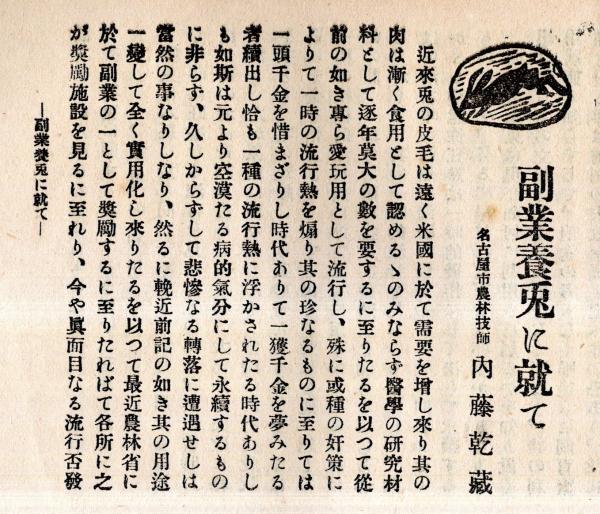 副業養兎に就て
名古屋市農林技師 內藤乾藏
近來兎の皮毛は遠く米國に於て需要を增し來り其の
肉は漸く食用として認めるゝのみならず醫學の硏究材
料として逐年莫大の數を要するに至りたるを以つて從
前の如き專ら愛玩用として流行し、殊に或種の奸策に
よりて一時の流行熱を煽り其の珍なるものに至りては
一頭千金を惜まざりし時代ありて一攫千金を夢みたる
者續出し恰も一種の流行熱に浮かされたる時代ありし
も如斯は元より空漠たる病的氣分にして永續するもの
に非らず、久しからずして悲慘なる轉落に遭遇せしは
當然の事なりしなり、然るに輓近前記の如き其の用途
一變して全く實用化し來りたるを以つて最近農林省に
於て副業の一として奬勵するに至りたればて各所に之
が奬勵施設を見るに至れり、今や眞面目なる流行否發
―副業養兎に就て―